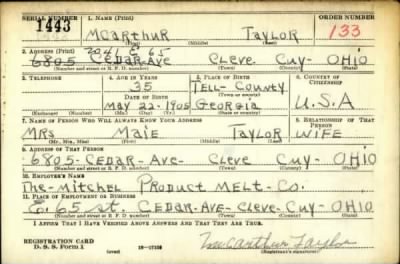 SERIAL NUMBER 1. NAME (Print) ORDER NUMBER
1443 McArthur Taylor 133
(First) (Middle) (Last)
2. ADDRESS (Print) 2041 E 65
6805 Cedar-Ave Cleve Cuy- OHIO
(Number and street or R. F. D. number) (Town) (County) (State)
3. TELEPHONE 4. AGE IN YEARS 5. PLACE OF BIRTH 6. COUNTRY OF CITIZENSHIP
35 Tell-County
(Town or county)
DATE OF BIRTH
May 22- 1905 Georgia U.S.A
(Mo.) (Day) (Yr.) (State or country)
7. NAME OF PERSON WHO WILL ALWAYS KNOW YOUR ADDRESS 8. RELATIONSHIP OF THAT PERSON
Mrs Maie Taylor Wife
(Mr., Mrs., Miss) (First) (Middle) (Last)
9. ADDRESS OF THAT PERSON
6805-Cedar-Ave-Cleve Cuy-OHIO
(Number and street or R. F. D. number) (Town) (County) (State)
10. EMPLOYER'S NAME
The-Mitchel Product Melt-Co.
11. PLACE OF EMPLOYMENT OR BUSINESS
E. 65 st. Cedar-Ave-Cleve-Cuy-OHIO
(Number and street or R. F. D. number) (Town) (County) (State)
I AFFIRM THAT I HAVE VERIFIED ABOVE ANSWERS AND THAT THEY ARE TRUE.
REGISTRATION CARD
D. S. S. Form 1 (over) McArthur Taylor
(Registrant's signature)